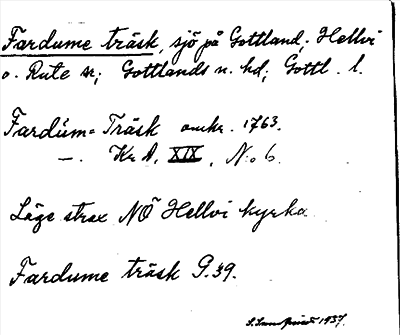 Fardume träsk, sjö på Gottland; Hellvi
o. Rute sn; Gottlands n. hd; Gottl. l.
Fardúm=Träsk omkr. 1763.
—. Kr A. XIX, N:o 6.
Läge strax NÖ Hellvi kyrka
Fardume träsk G.39.
1937.